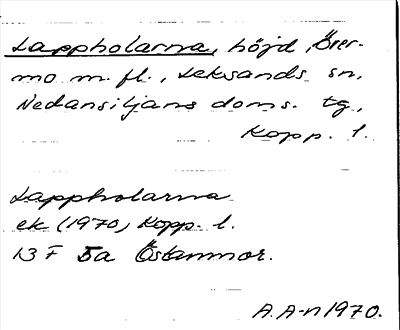 Lappholarna, höjd, Öser-
mo m. fl., Leksands sn,
Nedansiljans doms. tg,
Kopp. l.
Lappholarna
ek (1970) Kopp. l.
13 F 5a Östanmor.
A. A-n 1970.